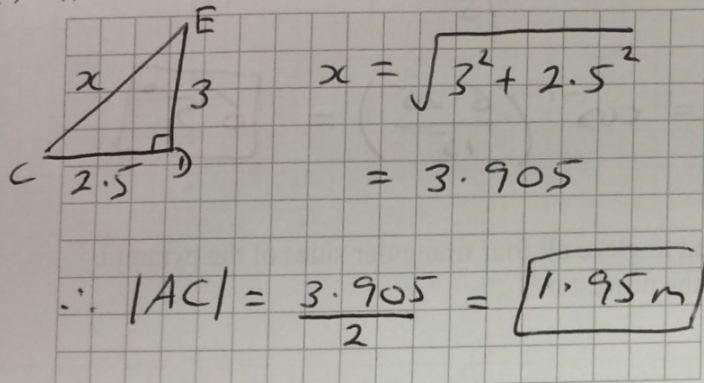 E
x
3
C
2.5
D
x = √(3² + 2.5²)
= 3.905
∴ |AC| = 3.905/2 = 1.95 m